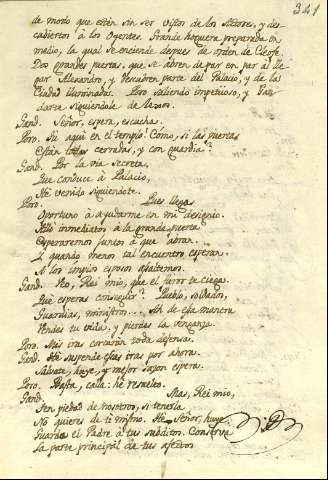 341
de modo que están sin ser vistos de los Actores, y des-
cubiertos à los Oyentes. Grande hoguera preparada en
medio, la qual se enciende despues de orden de Cleofe.
Dos grandes puertas, que se abren de par en par al lle-
gar Alexandro, y descubren parte del Palacio, y de la
Ciudad iluminada. Poro saliendo impetuoso, y Gan-
darte siguiendole de lexos.
Gand. Señor, espera, escucha.
Poro. Tú aquí en el templo! Cómo, si las puertas
Están todas cerradas, y con guardia?
Gand. Por la via secreta,
Que conduce à Palacio,
He venido siguiendote.
Poro. Pues llegas
Oportuno à ayudarme en mi designio.
Allí inmediatos à la grande puerta
Esperaremos juntos à que abran
Y quando menos tal encuentro esperan
A los impios esposos asaltemos.
Gand. No, Rei mio, que el furor te ciega.
Qué esperas conseguir? Pueblo, soldados,
Guardias, ministros.... Ah de esa manera
Vendes tu vida, y pierdes la venganza.
Poro. Mis iras cortarán toda defensa.
Gand. Suspende esas iras por ahora.
Salvate, huye, y mejor sazon espera.
Poro. Basta, calla: he resuelto.
Gand. Mas, Rei mio,
Ten piedad de nosotros, si tenerla
No quieres de ti mismo. Señor, huye
Guarda el Padre à tus subditos. Conserva
La parte principal de tus afectos